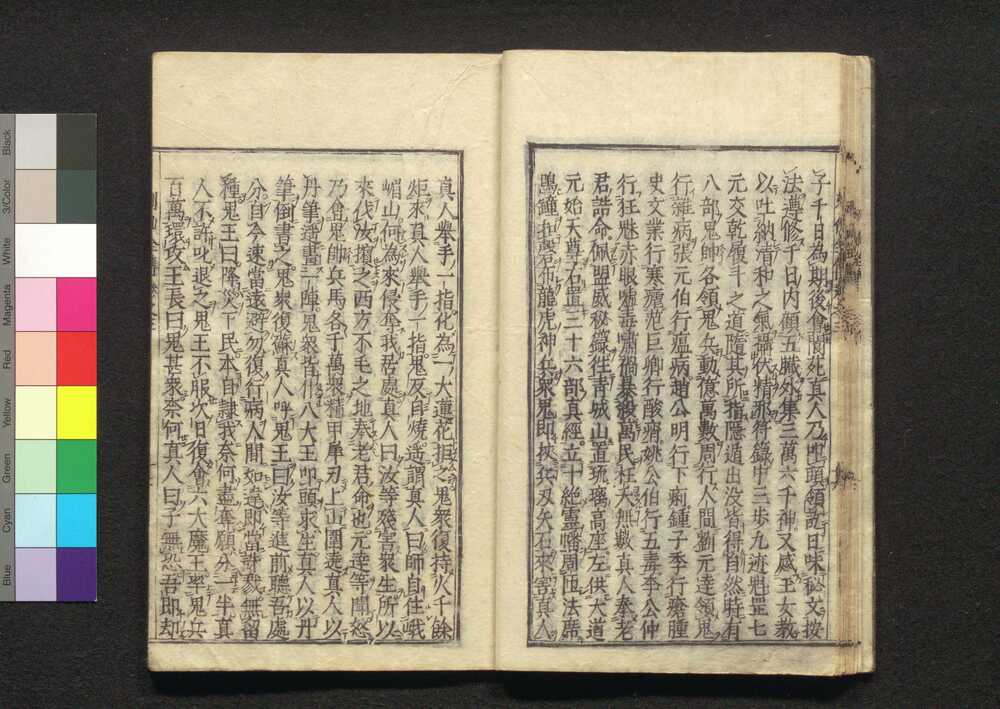 子千日為期後會閬苑真人乃叩頭領訖日味秘文按
法遵修千日內顧五臟外集三萬六千神又感玉女教
以吐納清和之氣攝伏精邪符籙中三步九迹魁罡七
元交乾履斗之道隨其所指隱遁出沒皆得自然時有
八部鬼帥各領鬼兵動億萬數周行人間劉元達領鬼
行雜病張元伯行瘟病趙公明行下痢鍾子季行瘡腫
史文業行寒瘧范巨卿行酸痟姚公伯行五毒李公仲
行狂魅赤眼噓毒嘯禍暴殺萬民枉夭無數真人奉老
君誥命佩盟威秘籙往青城山置琉璃高座左供大道
元始天尊右置三十六部真經立十絕靈幡周匝法席
鳴鐘扣磬布龍虎神兵眾鬼即挾兵刃矢石來害真人
真人舉手一指化為一大蓮花拒之鬼眾復持火千餘
炬來真人舉手一指鬼反自燒遙謂真人曰師自住峨
嵋山何為來侵奪我居處真人曰汝等殘害眾生所以
來伐汝擯之西方不毛之地奉老君命也元達等聞怒
乃會鬼帥兵馬各千萬眾精甲犀刃上山圍遶真人以
丹筆遙畫一陣鬼眾皆仆八大王叩頭求生真人以丹
筆倒書之鬼眾復穌真人呼鬼王曰汝等進前聽吾處
分自今速當遠避勿復行病人間如違即當誅戮無留
種鬼王曰降災下民本自隸我奈何盡奪願分一半真
人不許叱退之鬼王不服次日復會六大魔王率鬼兵
百萬環攻王長曰鬼甚眾奈何真人曰子無恐吾即却
Black
3/Color
White
Magenta
Red
Yellow
Green
Cyan
Blue